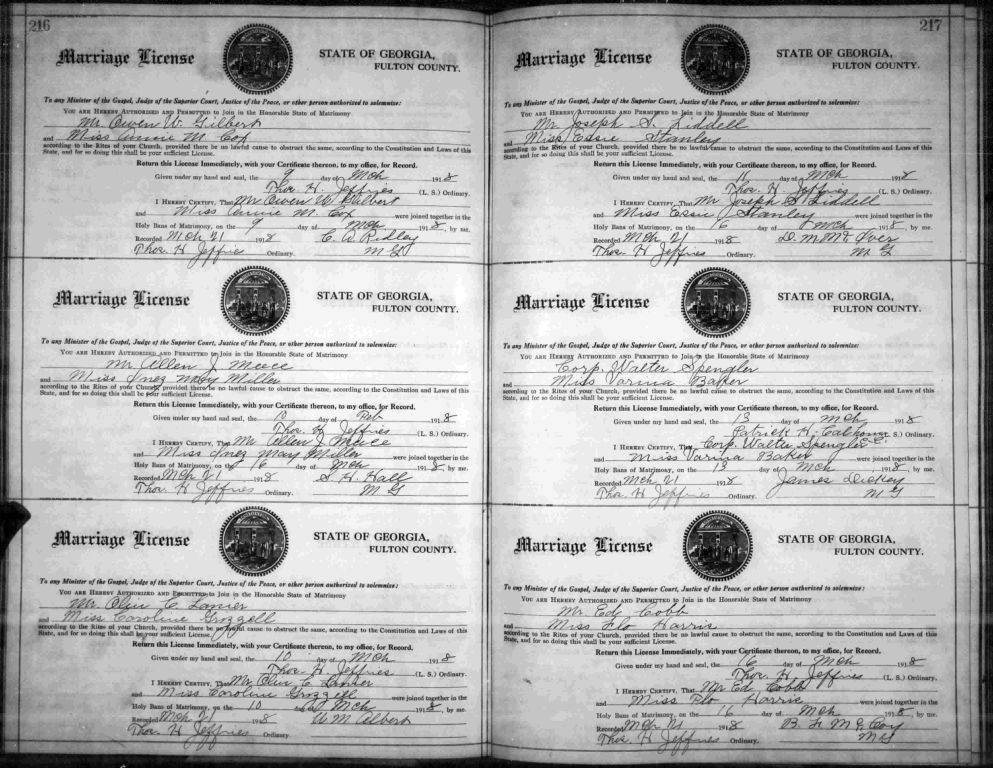 216
Marriage License
STATE OF GEORGIA,
FULTON COUNTY.
To any Minister of the Gospel, Judge of the Superior Court, Justice of the Peace, or other person authorized to solemnize:
YOU ARE HEREBY AUTHORIZED AND PERMITTED to Join in the Honorable State of Matrimony
Mr. Owen W. Gilbert
and Miss Annie M. Cox
according to the Rites of your Church, provided there be no lawful cause to obstruct the same, according to the Constitution and Laws of this
State, and for so doing this shall be your sufficient License.
Return this License Immediately, with your Certificate thereon, to my office, for Record.
Given under my hand and seal, the 9 day of Mch 1918
Thos. H. Jeffries (L. S.) Ordinary.
I HEREBY CERTIFY, That Mr Owen W Gilbert
and Miss Annie M. Cox were joined together in the
Holy Bans of Matrimony, on the 9 day of Mch 1918, by me.
Recorded Mch 21 1918 C. A. Ridley
Thos. H Jeffries Ordinary. M G
Marriage License
STATE OF GEORGIA,
FULTON COUNTY.
To any Minister of the Gospel, Judge of the Superior Court, Justice of the Peace, or other person authorized to solemnize:
YOU ARE HEREBY AUTHORIZED AND PERMITTED to Join in the Honorable State of Matrimony
Mr Allen J. Mace
and Miss Inez May Miller
according to the Rites of your Church, provided there be no lawful cause to obstruct the same, according to the Constitution and Laws of this
State, and for so doing this shall be your sufficient License.
Return this License Immediately, with your Certificate thereon, to my office, for Record.
Given under my hand and seal, the day of Feb 1918
Thos. H Jeffries (L. S.) Ordinary.
I HEREBY CERTIFY, That Mr Allen J Mace
and Miss Inez May Miller were joined together in the
Holy Bans of Matrimony, on the 16 day of Mch 1918, by me.
Recorded Mch 21 1918 S. H. Hall
Thos. H Jeffries Ordinary. M G
Marriage License
STATE OF GEORGIA,
FULTON COUNTY.
To any Minister of the Gospel, Judge of the Superior Court, Justice of the Peace, or other person authorized to solemnize:
YOU ARE HEREBY AUTHORIZED AND PERMITTED to Join in the Honorable State of Matrimony
Mr. Olin C. Lanier
and Miss Caroline Grozzell
according to the Rites of your Church, provided there be no lawful cause to obstruct the same, according to the Constitution and Laws of this
State, and for so doing this shall be your sufficient License.
Return this License Immediately, with your Certificate thereon, to my office, for Record.
Given under my hand and seal, the 10 day of Mch 1918
Thos. H. Jeffries (L. S.) Ordinary.
I HEREBY CERTIFY, That Mr. Olin C. Lanier
and Miss Caroline Grozzell were joined together in the
Holy Bans of Matrimony, on the 10 day of Mch 1918, by me.
Recorded Mch 21 1918 A M Albert
Thos. H Jeffries Ordinary.
217
Marriage License
STATE OF GEORGIA,
FULTON COUNTY.
To any Minister of the Gospel, Judge of the Superior Court, Justice of the Peace, or other person authorized to solemnize:
YOU ARE HEREBY AUTHORIZED AND PERMITTED to Join in the Honorable State of Matrimony
Mr Joseph S. Liddell
and Miss Essie Stanley
according to the Rites of your Church, provided there be no lawful cause to obstruct the same, according to the Constitution and Laws of this
State, and for so doing this shall be your sufficient License.
Return this License Immediately, with your Certificate thereon, to my office, for Record.
Given under my hand and seal, the day of Mch 1918
Thos. H Jeffries (L. S.) Ordinary.
I HEREBY CERTIFY, That Mr Joseph S. Liddell
and Miss Essie Stanley were joined together in the
Holy Bans of Matrimony, on the 16 day of Mch 1918, by me.
Recorded Mch 21 1918 D. M
Thos. H Jeffries Ordinary. M G
Marriage License
STATE OF GEORGIA,
FULTON COUNTY.
To any Minister of the Gospel, Judge of the Superior Court, Justice of the Peace, or other person authorized to solemnize:
YOU ARE HEREBY AUTHORIZED AND PERMITTED to Join in the Honorable State of Matrimony
Corp. Walter Spengler
and Miss Varina Baker
according to the Rites of your Church, provided there be no lawful cause to obstruct the same, according to the Constitution and Laws of this
State, and for so doing this shall be your sufficient License.
Return this License Immediately, with your Certificate thereon, to my office, for Record.
Given under my hand and seal, the 13 day of Mch 1918
Patrick H. Calhoun (L. S.) Ordinary.
I HEREBY CERTIFY, That Corp. Walter Spengler
and Miss Varina Baker were joined together in the
Holy Bans of Matrimony, on the 13 day of Mch 1918, by me.
Recorded Mch 21 1918 James Dickey
Thos. H Jeffries Ordinary. M G
Marriage License
STATE OF GEORGIA,
FULTON COUNTY.
To any Minister of the Gospel, Judge of the Superior Court, Justice of the Peace, or other person authorized to solemnize:
YOU ARE HEREBY AUTHORIZED AND PERMITTED to Join in the Honorable State of Matrimony
Mr. Ed Cobb
and Miss Flo Harris
according to the Rites of your Church, provided there be no lawful cause to obstruct the same, according to the Constitution and Laws of this
State, and for so doing this shall be your sufficient License.
Return this License Immediately, with your Certificate thereon, to my office, for Record.
Given under my hand and seal, the 16 day of Mch 1918
Thos. H. Jeffries (L. S.) Ordinary.
I HEREBY CERTIFY, That Mr Ed Cobb
and Miss Flo Harris were joined together in the
Holy Bans of Matrimony, on the 16 day of Mch 1918, by me.
Recorded Mch 21 1918 B. F. McCoy
Thos. H. Jeffries Ordinary. M G